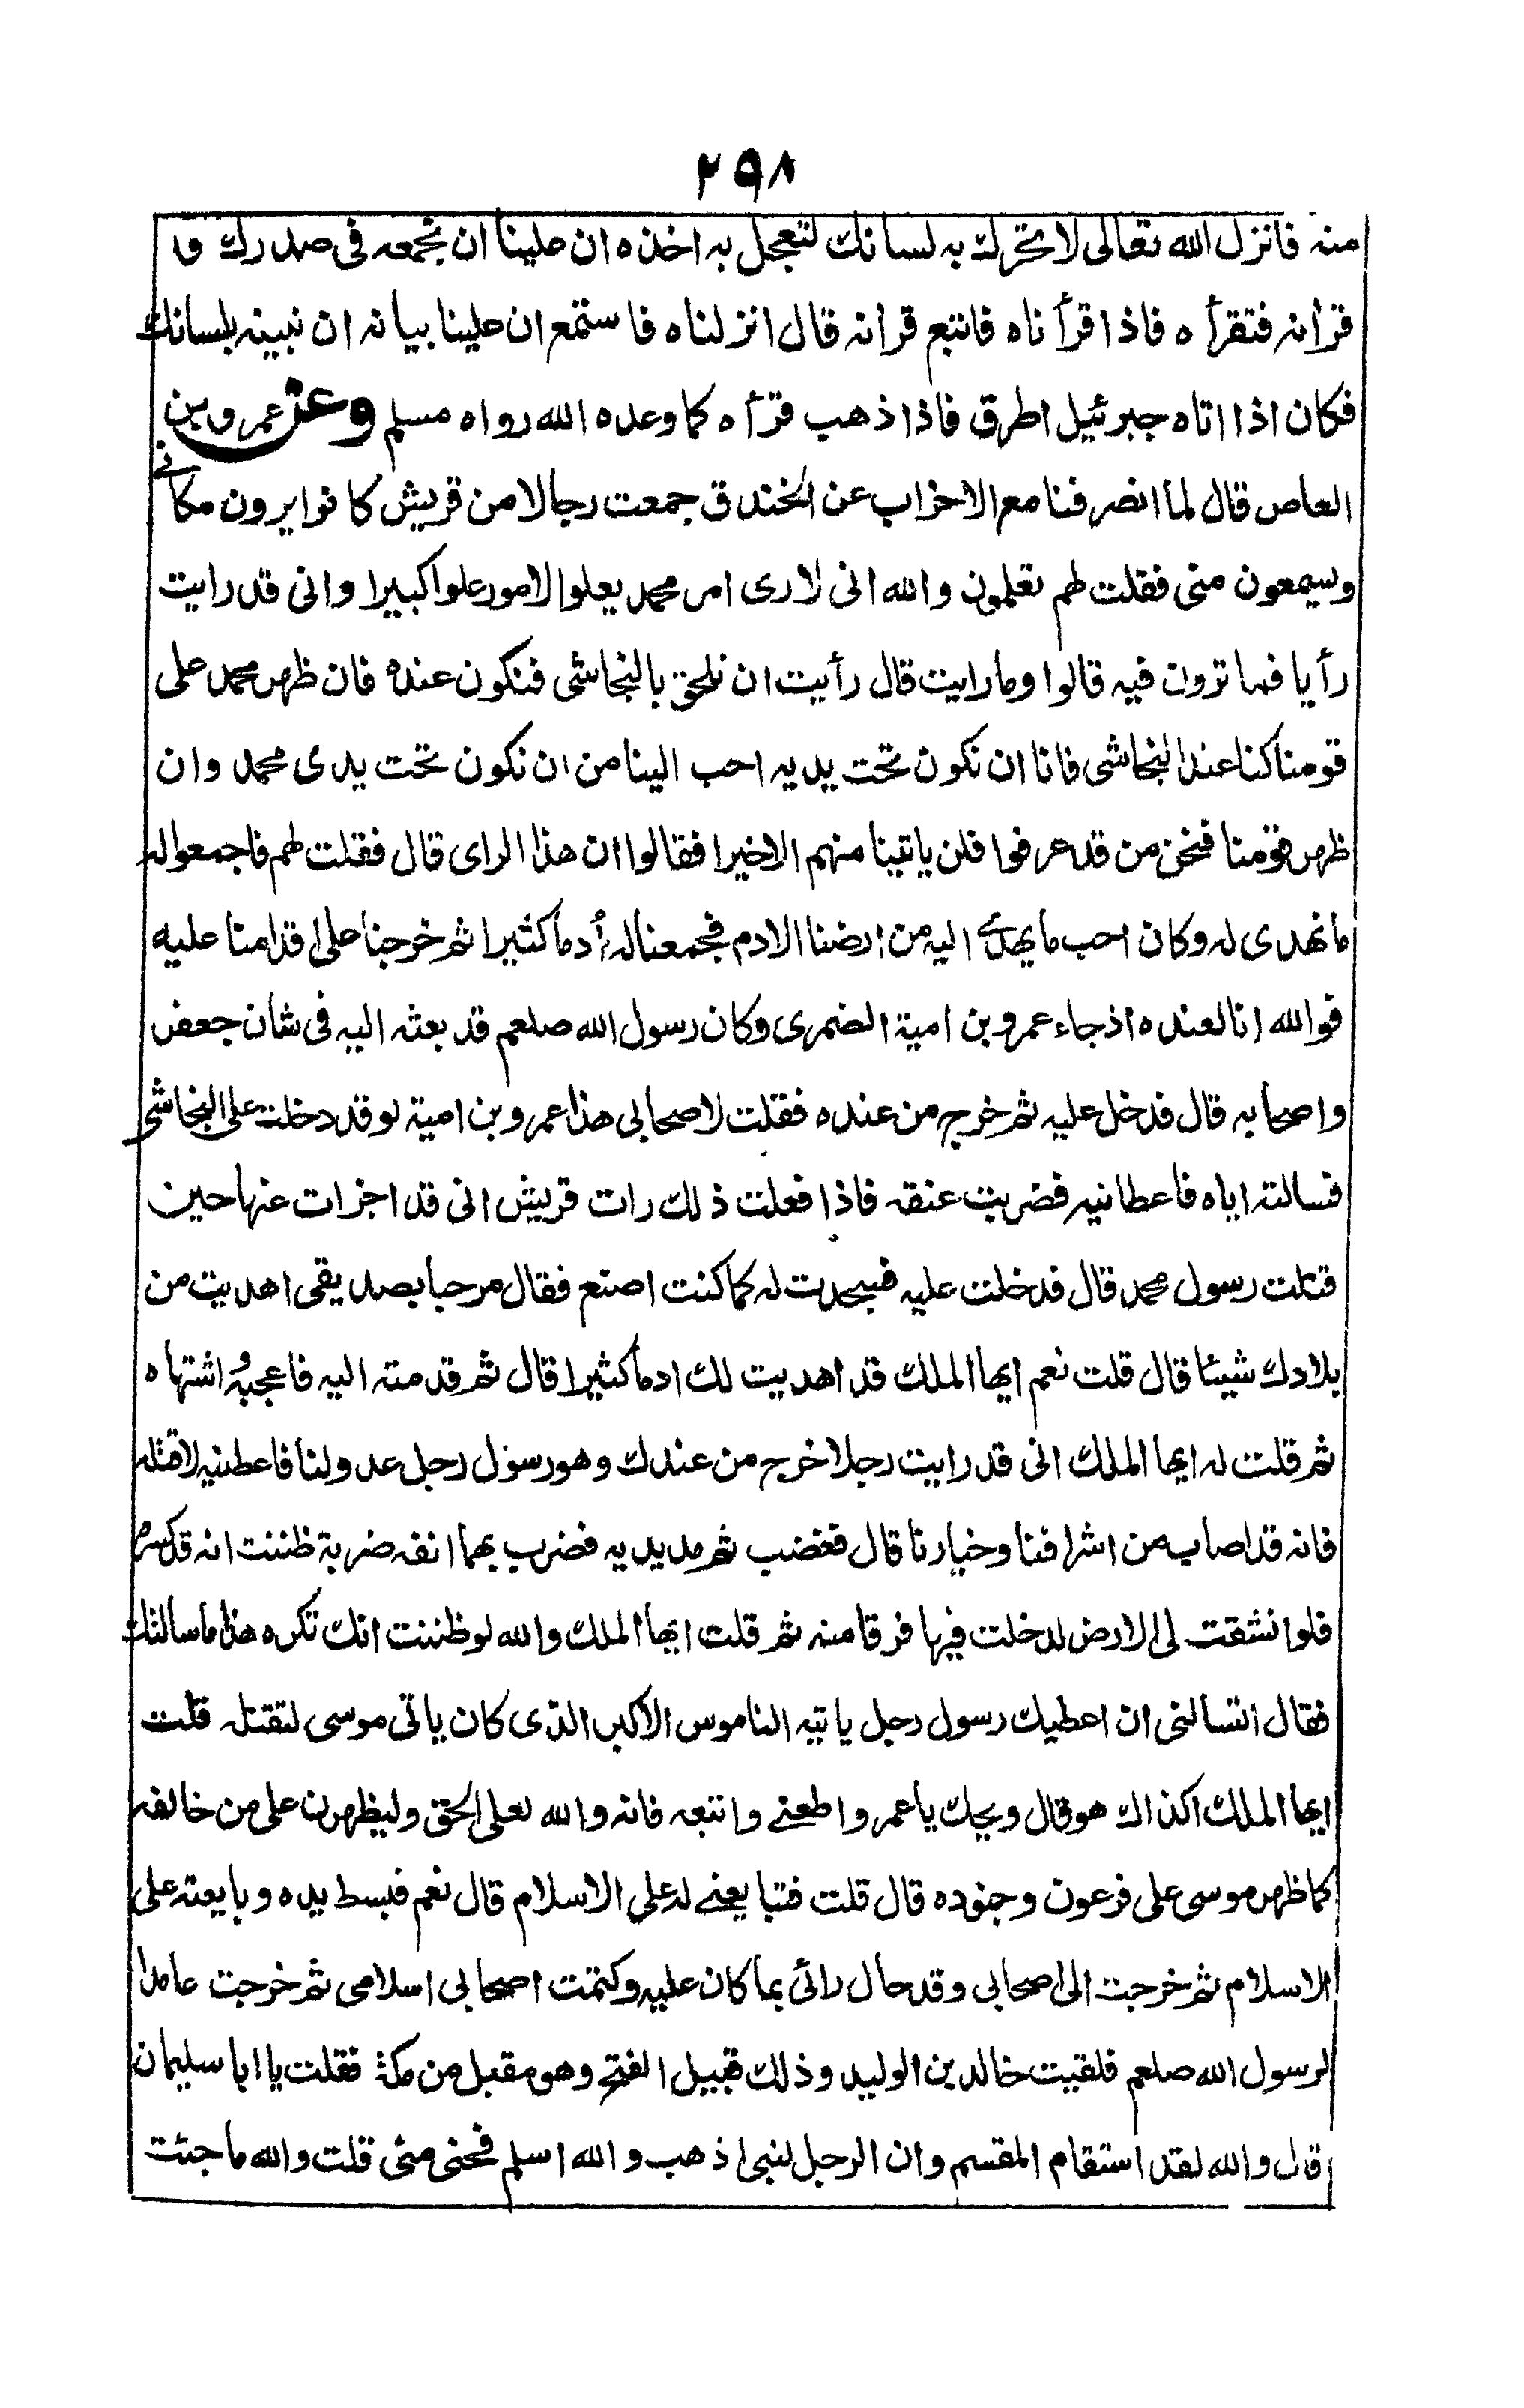 ٢٩٨
منه فانزل الله تعالى لا تحرك به لسانك لتعجل به اخذه ان علينا ان نجمعه فى صدرك و
قرانه فتقرأه فاذا قرأناه فاتبع قرانه قال انزلناه فاستمع ان علينا بيانه ان نبينه بلسانك
فكان اذا اتاه جبرئيل اطرق فاذا ذهب قرأه كما وعده الله رواه مسلم وعن عمرو بن
العاص قال لما انصرفنا مع الاحزاب عن الخندق جمعت رجالا من قريش كانوا يرون مكانى
ويسمعون منى فقلت لهم تعلمون والله انى لارى امر محمد يعلوا الامور علوا كبيرا وانى قد رايت
رأيا فما ترون فيه قالوا وما رايت قال رأيت ان نلحق بالنجاشى فنكون عنده فان ظهر محمد على
قومنا كنا عند النجاشى فانا ان نكون تحت يديه احب الينا من ان نكون تحت يدى محمد وان
ظهر قومنا فنحن من قد عرفوا فلن ياتينا منهم الا خيرا فقالوا ان هذا الراى قال فقلت لهم فاجمعوا له
ما نهدى له وكان احب ما يهدى اليه من ارضنا الادم فجمعنا له أدما كثيرا ثم خرجنا حتى قدمنا عليه
فوالله انا لعنده اذ جاء عمرو بن امية الضمرى وكان رسول الله صلعم قد بعثه اليه فى شان جعفر
واصحابه قال فدخل عليه ثم خرج من عنده فقلت لاصحابى هذا عمرو بن امية لو قد دخلت على النجاشى
فسالته اياه فاعطانيه فضربت عنقه فاذا فعلت ذلك رات قريش انى قد اجزات عنها حين
قتلت رسول محمد قال فدخلت عليه فسجدت له كما كنت اصنع فقال مرحبا بصديقى اهديت من
بلادك شيئا قال قلت نعم ايها الملك قد اهديت لك ادما كثيرا قال ثم قدمته اليه فاعجبه واشتهاه
ثم قلت له ايها الملك انى قد رايت رجلا خرج من عندك وهو رسول رجل عدو لنا فاعطنيه لاقتله
فانه قد اصاب من اشرافنا وخيارنا قال فغضب ثم مد يديه فضرب بهما انفه ضربة ظننت انه قد كسره
فلو انشقت لى الارض لدخلت فيها فرقا منه ثم قلت ايها الملك والله لو ظننت انك تكره هذا ما سالتك
فقال اتسالنى ان اعطيك رسول رجل ياتيه الناموس الاكبر الذى كان ياتى موسى لتقتله قلت
ايها الملك اكذاك هو قال ويحك يا عمرو اطعنى واتبعه فانه والله لعلى الحق وليظهرن على من خالفه
كما ظهر موسى على فرعون وجنوده قال قلت فتبايعنى له على الاسلام قال نعم فبسط يده وبايعته على
الاسلام ثم خرجت الى اصحابى وقد حال رائى بما كان عليه وكتمت اصحابى اسلامى ثم خرجت عامدا
لرسول الله صلعم فلقيت خالد بن الوليد وذلك قبيل الفتح وهو مقبل من مكة فقلت يا ابا سليمان
قال والله لقد استقام المقسم وان الرجل لنبى اذهب والله اسلم فحتى متى قلت والله ما جئت